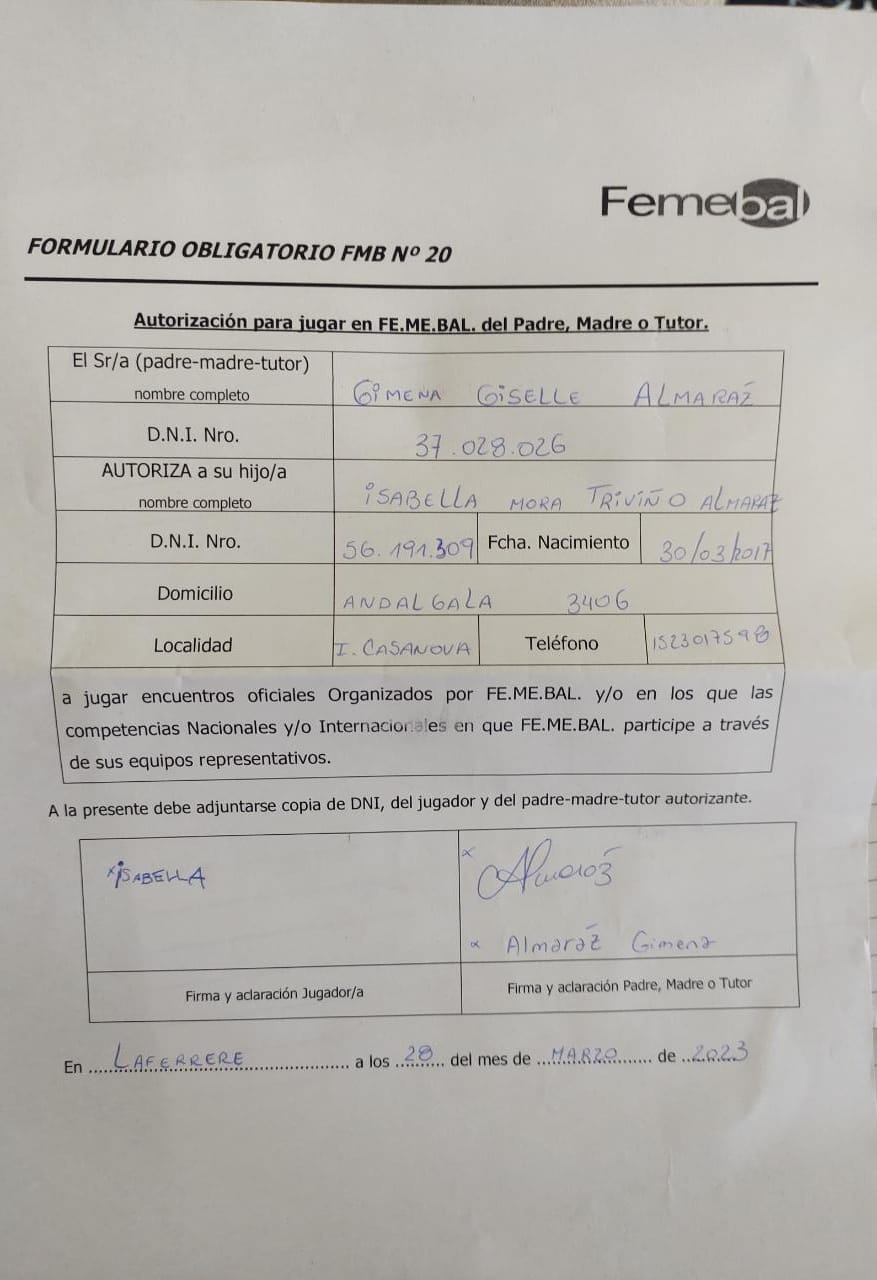 Femebal
FORMULARIO OBLIGATORIO FMB Nº 20
Autorización para jugar en FE.ME.BAL. del Padre, Madre o Tutor.
El Sr/a (padre-madre-tutor)
nombre completo
GIMENA GISELLE ALMARAZ
D.N.I. Nro.
37.028.026
AUTORIZA a su hijo/a
nombre completo
ISABELLA MORA TRIVIÑO ALMARAZ
D.N.I. Nro.
56.191.309
Fcha. Nacimiento
30/03/2017
Domicilio
ANDALGALA 3406
Localidad
I. CASANOVA
Teléfono
1523017598
a jugar encuentros oficiales Organizados por FE.ME.BAL. y/o en los que las
competencias Nacionales y/o Internacionales en que FE.ME.BAL. participe a través
de sus equipos representativos.
A la presente debe adjuntarse copia de DNI, del jugador y del padre-madre-tutor autorizante.
x ISABELLA
x Almaráz
x Almaráz Gimena
Firma y aclaración Jugador/a
Firma y aclaración Padre, Madre o Tutor
En LAFERRERE a los 28 del mes de MARZO de 2023